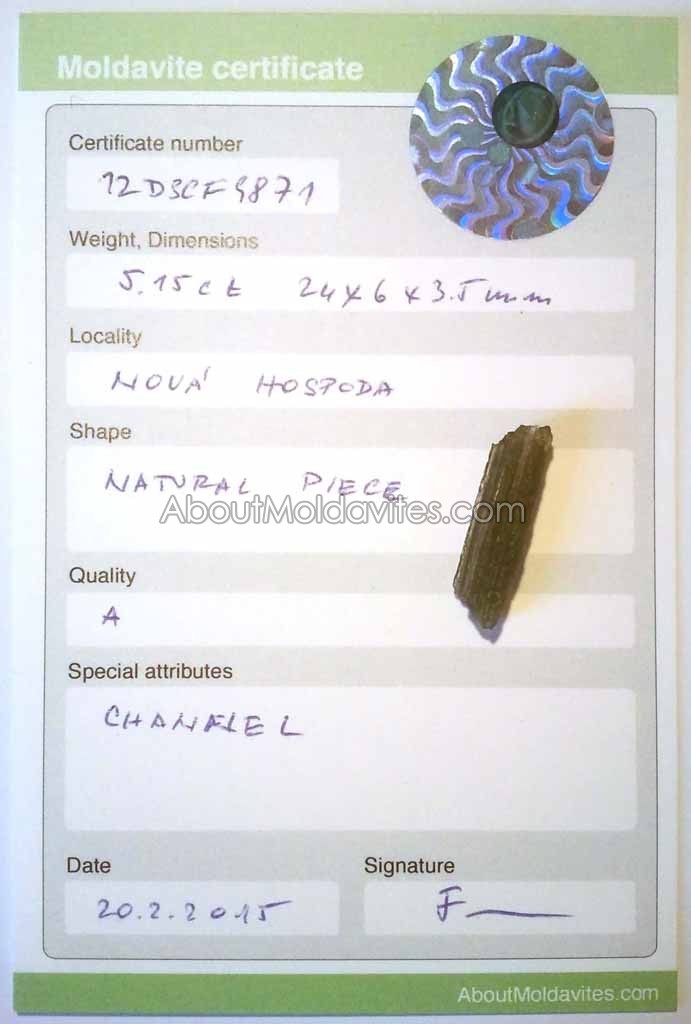 Moldavite certificate
Certificate number
12D3CF9871
Weight, Dimensions
5.15ct 24x6x3.5mm
Locality
NOVÁ HOSPODA
Shape
NATURAL PIECE
AboutMoldavites.com
Quality
A
Special attributes
CHANNEL
Date Signature
20.2.2015
AboutMoldavites.com